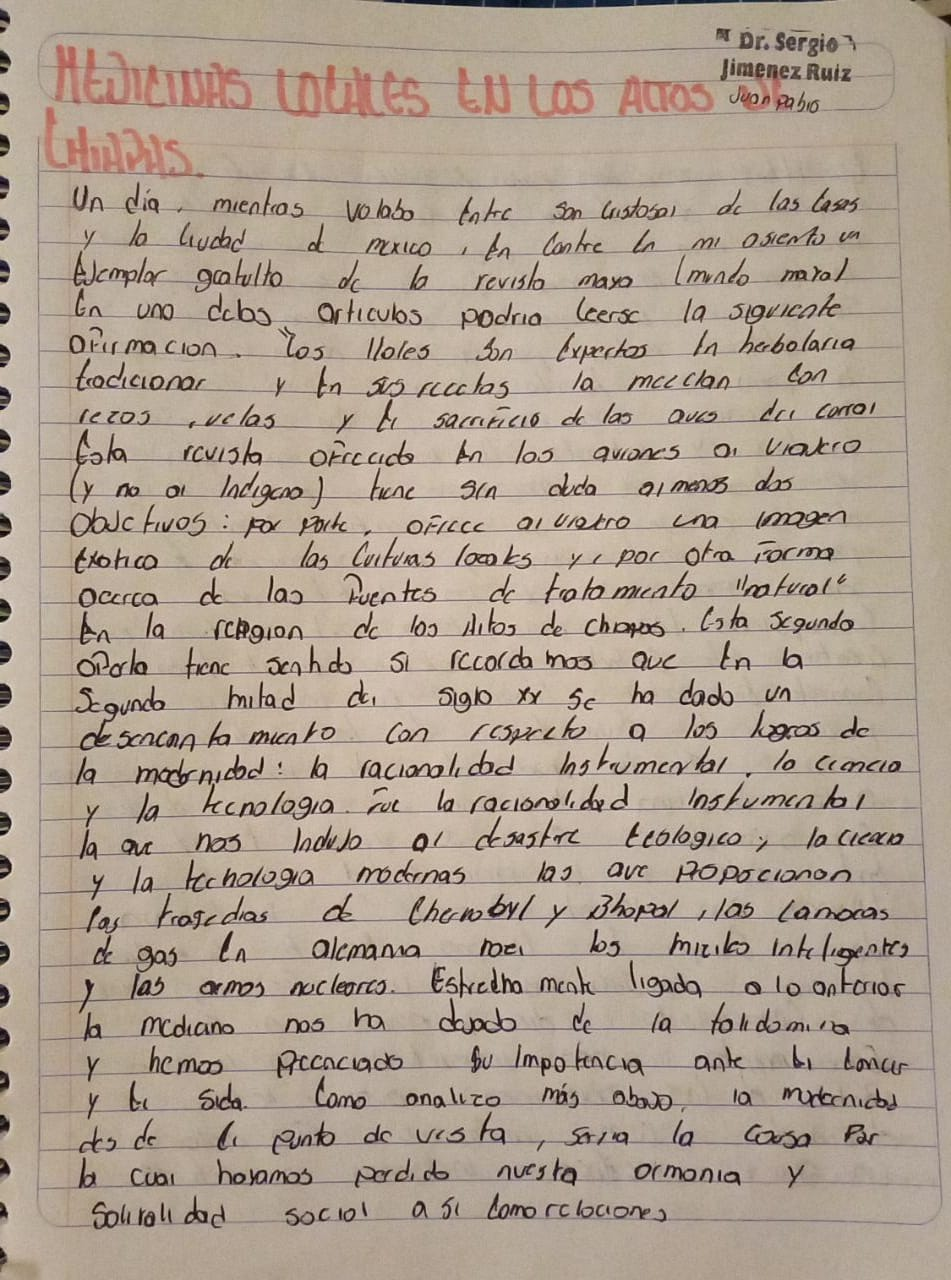 Dr. Sergio
Jimenez Ruiz
Juan Pablo
MEDICINAS LOCALES EN LOS ALTOS DE
CHIAPAS.
Un día, mientras volabo entre san Cristosal de las casas
y la Ciudad d mexico, en contre en mi asiento un
Ejemplar gratuito de lo revista maya (mundo maya)
En uno delos articulos podria leerse la siguiente
afirmacion. "los Iloles son expertos en herbolaria
tradicional y en sus recetas la mezclan con
rezos, velas y el sacrificio de las aves del corral
Esta revista ofrecida en los aviones al viajero
(y no al indigena) tiene sin duda al menos dos
Objetivos: por parte, ofrece al viajero una imagen
exotica de las culturas locales y, por otra forma
acerca de las fuentes de tratamiento "natural"
En la region de los Altos de chiapas. Esta segundo
tiene sentido si recordamos que en la
Segundo mitad del siglo xx se ha dado un
desencanta miento con respecto a los logros de
la modernidad: la racionalidad instrumental, la ciencia
y la tecnologia. Fue la racionalidad instrumental
la que nos indujo al desastre ecologico, la ciencia
y la technologia modernas las que
las tragedias de Chernobyl y Bhopal, las camaras
de gas en alemania nazi los misiles inteligentes
y las armas nucleares. Estrecha mente ligada a lo anterior
la nos ha dejado de la
y hemos su impotencia ante el cancer
y el sida. Como analizo más abajo, la modernidad
des de el punto de vista, seria la causa por
la cual hayamos perdido nuestra armonia y
social a si como relaciones